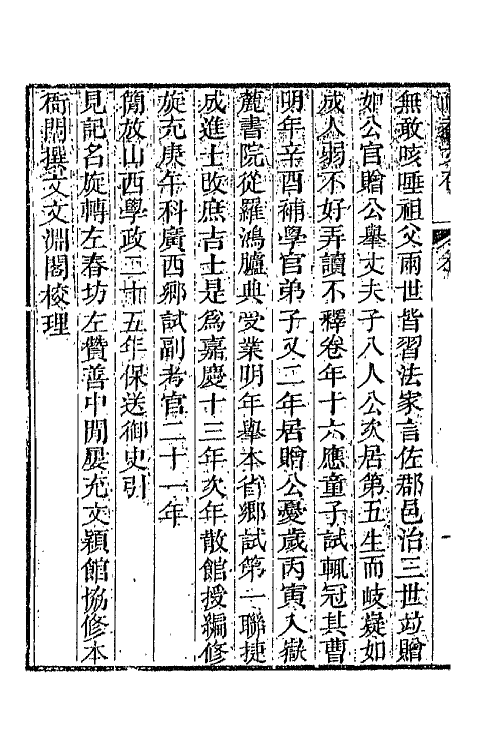 無敢咳唾祖父兩世皆習法家言佐郡邑治三世竝贈
如公官贈公舉丈夫子八人公次居第五生而岐嶷如
成人弱不好弄讀不釋卷年十六應童子試輒冠其曹
明年辛酉補學官弟子又二年居贈公憂歲丙寅入嶽
麓書院從羅鴻臚典受業明年舉本省鄉試第一聯捷
成進士改庶吉士是爲嘉慶十三年次年散館授編修
旋充庚午科廣西鄉試副考官二十一年
簡放山西學政二十五年保送御史引
見記名旋轉左春坊左贊善中閒屢充文穎館協修本
衙門撰文文淵閣校理